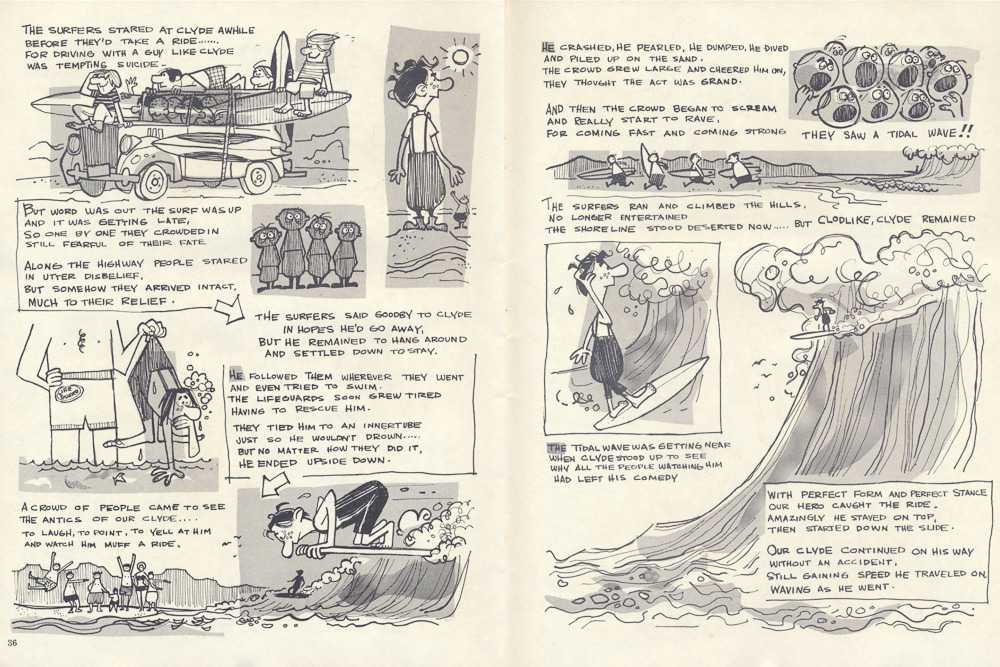 THE SURFERS STARED AT CLYDE AWHILE
BEFORE THEY'D TAKE A RIDE......
FOR DRIVING WITH A GUY LIKE CLYDE
WAS TEMPTING SUICIDE.
BUT WORD WAS OUT THE SURF WAS UP
AND IT WAS GETTING LATE,
SO ONE BY ONE THEY CROWDED IN
STILL FEARFUL OF THEIR FATE.
ALONG THE HIGHWAY PEOPLE STARED
IN UTTER DISBELIEF,
BUT SOMEHOW THEY ARRIVED INTACT,
MUCH TO THEIR RELIEF.
THE SURFERS SAID GOODBY TO CLYDE
IN HOPES HE'D GO AWAY,
BUT HE REMAINED TO HANG AROUND
AND SETTLED DOWN TO STAY.
HE FOLLOWED THEM WHEREVER THEY WENT
AND EVEN TRIED TO SWIM.
THE LIFEGUARDS SOON GREW TIRED
HAVING TO RESCUE HIM.
THEY TIED HIM TO AN INNERTUBE
JUST SO HE WOULDN'T DROWN.....
BUT NO MATTER HOW THEY DID IT,
HE ENDED UPSIDE DOWN.
LIFE GUARD
A CROWD OF PEOPLE CAME TO SEE
THE ANTICS OF OUR CLYDE....
TO LAUGH, TO POINT, TO YELL AT HIM
AND WATCH HIM MUFF A RIDE.
36
HE CRASHED, HE PEARLED, HE DUMPED, HE DIVED
AND PILED UP ON THE SAND.
THE CROWD GREW LARGE AND CHEERED HIM ON,
THEY THOUGHT THE ACT WAS GRAND.
AND THEN THE CROWD BEGAN TO SCREAM
AND REALLY START TO RAVE,
FOR COMING FAST AND COMING STRONG
THEY SAW A TIDAL WAVE!!
THE SURFERS RAN AND CLIMBED THE HILLS,
NO LONGER ENTERTAINED
THE SHORELINE STOOD DESERTED NOW.....
BUT CLODLIKE, CLYDE REMAINED
THE TIDAL WAVE WAS GETTING NEAR
WHEN CLYDE STOOD UP TO SEE
WHY ALL THE PEOPLE WATCHING HIM
HAD LEFT HIS COMEDY
WITH PERFECT FORM AND PERFECT STANCE
OUR HERO CAUGHT THE RIDE.
AMAZINGLY HE STAYED ON TOP,
THEN STARTED DOWN THE SLIDE.
OUR CLYDE CONTINUED ON HIS WAY
WITHOUT AN ACCIDENT,
STILL GAINING SPEED HE TRAVELED ON,
WAVING AS HE WENT.